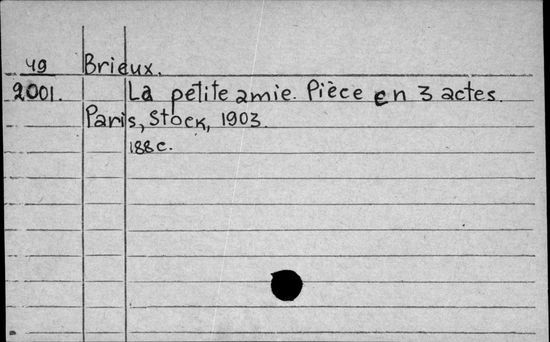 49 Brieux.
2001. La petite amie. Pièce en 3 actes.
Paris, Stock, 1903.
188 c.